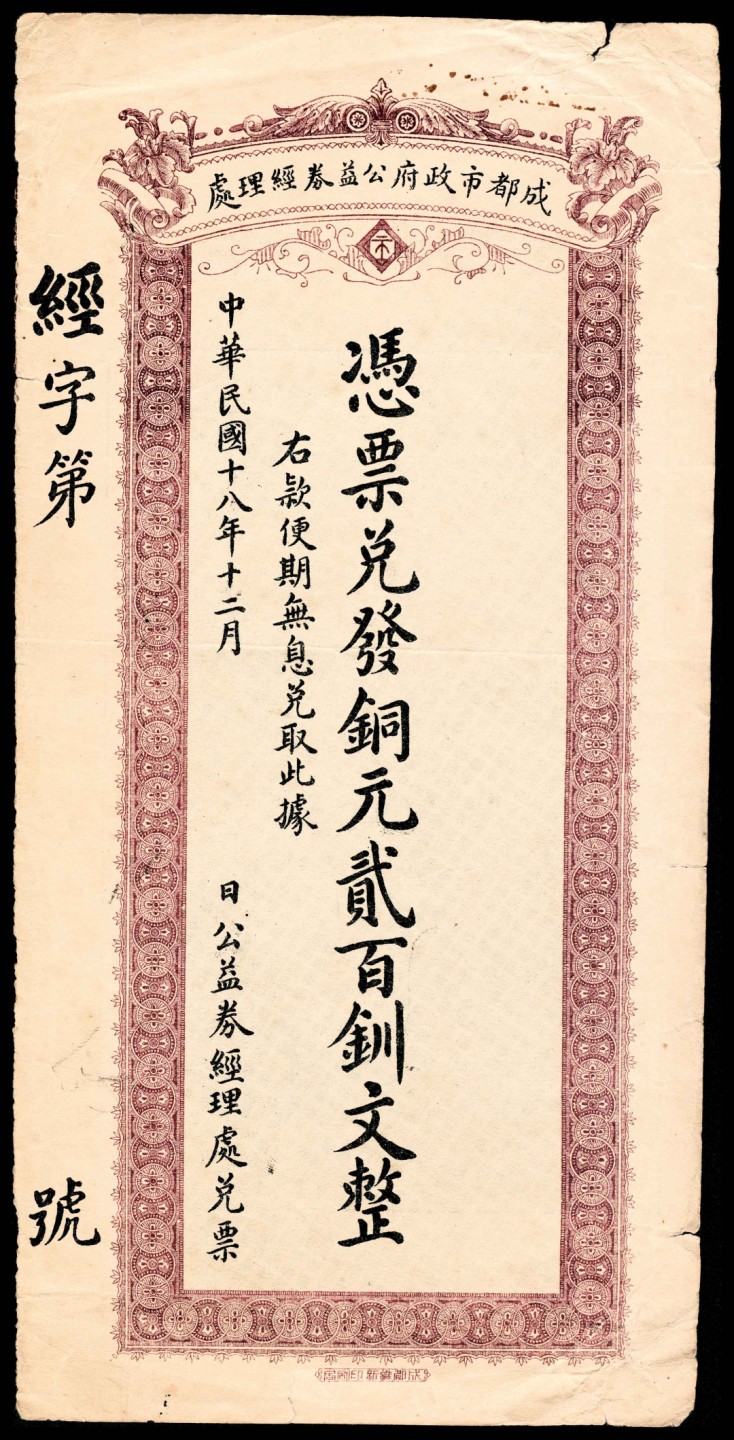 成都市政府公益券經理處
憑票兑發銅元貳百釧文整
右款便期無息兑取此據
中華民國十八年十二月　日公益券經理處兑票
經字第　號